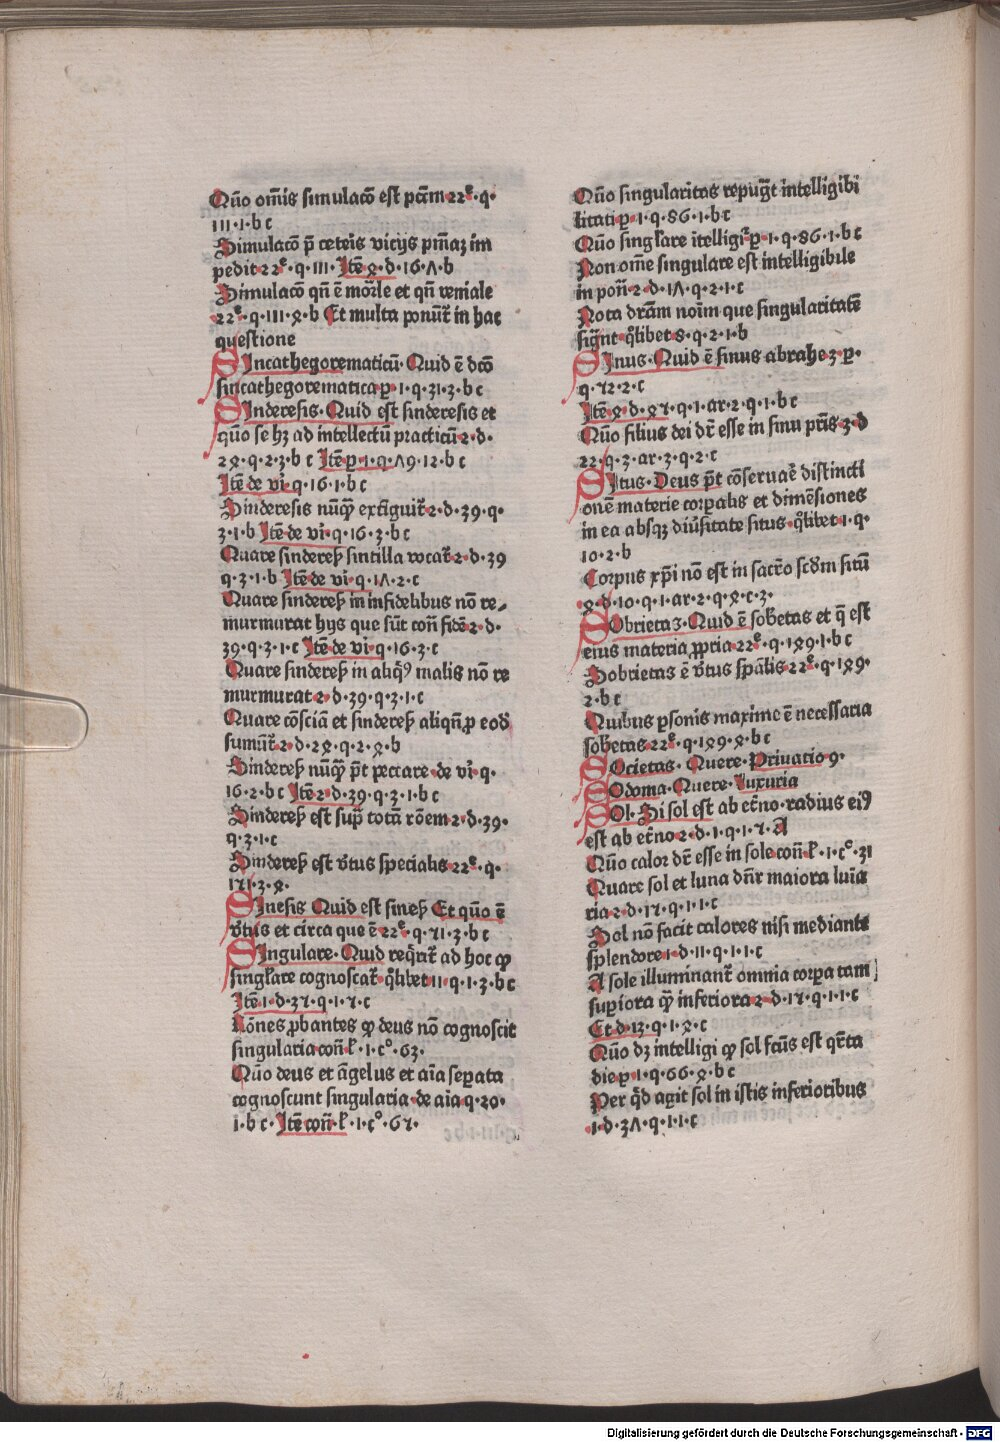 Quō om̄is simulacō est pctm̄ 22ᵉ·q·
111·1·b c
Simulacō p̄ ceteis vicijs pm̄aꝫ im
pedit 22ᵉ·q·111·Itē ꝝ·d·16·ʌ·b
Simulacō qn̄ ē mor̄le et qn̄ veniale
22ᵉ·q·111·ꝝ·b Et multa ponūt̄ in hac
questione
Sincathegorematicū·Quid ē dcō
sincathegorematica p·1·q·31·3·b c
Sinderesis·Quid est sinderesis et
quō se hꝫ ad intellectū practicū 2·d·
2ꝝ·q·2·3·b c Itē p·1·q·ʌ9·12·b c
Itē de vi·q·16·1·b c
Sinderesis nūqꝫ extiguit̄ 2·d·39·q·
3·1·b Itē de vi·q·16·3·b c
Quare sindereß sintilla vocat̄ 2·d·39
q·3·1·b Itē de vi·q·1ʌ·2·c
Quare sindereß in infidelibus nō re⸗
murmurat hys que sūt con̄ fidē 2·d·
39·q·3·1·c Itē de vi·q·16·3·c
Quare sindereß in aliq̄ꝰ malis nō re
murmurat 2·d·39·q·3·1·c
Quare cōsciā et sindereß aliqn̄ ꝓ eod̄
sumūt̄ 2·d·2ꝝ·q·2·ꝝ·b
Sindereß nūqꝫ pt̄ peccare de vi·q·
16·2·b c Itē 2·d·39·q·3·1·b c
Sindereß est sup̄ totā rōem 2·d·39·
q·3·1·c
Sindereß est v̄tus specialis 22ᵉ·q·
171·3·ꝝ·
Sinesis Quid est sineß Et quō ē
v̄tus et circa que ē 22ᵉ·q·71·3·b c
Singulare·Quid req̄rit̄ ad hoc ꝙ
singlare cognoscat̄ q̄libet 11·q·1·3·b c
Itē 1·d·37·q·1·7·c
Rōnes ꝓbantes ꝙ deus nō cognoscit
singularia con̄ l̄·1·cᵒ·63·
Quō deus et āgelus et aīa sepata
cognoscunt singularia de aīa q·20·
1·b c·Itē con̄ l̄·1·cᵒ·67·
Quō singularitas repugt̄ intelligibi
litati p·1·q·86·1·b c
Quō singlare itelligit̄ p·1·q·86·1·b c
Non om̄e singulare est intelligibile
in pon̄ 2·d·1ʌ·q·2·1·c
Nota dr̄am noīm que singularitatē
sign̄t q̄libet 8·q·2·1·b
Sinus·Quid ē sinus abrahe 3·p·
q·72·2·c
Itē ꝝ·d·ꝝ7·q·1·ar·2·q·1·b c
Quō filius dei dr̄ esse in sinu pris̄ 3·d
22·q·3·ar·3·q·2·c
Situs·Deus pt̄ cōseruar̄e distincti
onē materie corꝑalis et dimēsiones
in ea absqꝫ diu̇sitate situs·q̄libet·1·q·
10·2·b
Corpus xp̄i nō est in sacr̄o scd̄m sitū
ꝝ·d·10·q·1·ar·2·q·ꝝ·c·3·
Sobrietaꝫ·Quid ē sob̄etas et q̄ est
eius materia ꝓpria 22ᵉ·q·1ꝝ9·1·b c
Sobrietas ē v̄tus sp̄alis 22ᵉ·q·1ꝝ9·
2·b c
Quibus ꝑsonis maxime ē necessaria
sob̄etas 22ᵉ·q·1ꝝ9·ꝝ·b c
Societas·Quere·Priuatio 9·
Sodoma·Quere·Luxuria
Sol·Si sol est ab et̄no·radius eiꝰ
est ab et̄no 2·d·1·q·1·7·A
Quō calor dr̄ esse in sole con̄ l̄·1·cᵒ·31
Quare sol et luna dn̄r maiora luīa
ria 2·d·17·q·1·1·c
Sol nō facit calores nisi mediante
splendore 1·d·11·q·1·1·c
A sole illuminant̄ omnia corꝑa tam
suꝑiora qꝫ inferiora 2·d·17·q·1·1·c
Et d·13·q·1·ꝝ·c
Quō dꝫ intelligi ꝙ sol fcūs est q̄rta
die p·1·q·66·ꝝ·b c
Per qd̄ agit sol in istis inferioribus
1·d·3ʌ·q·1·1·c
Digitalisierung gefördert durch die Deutsche Forschungsgemeinschaft - DFG